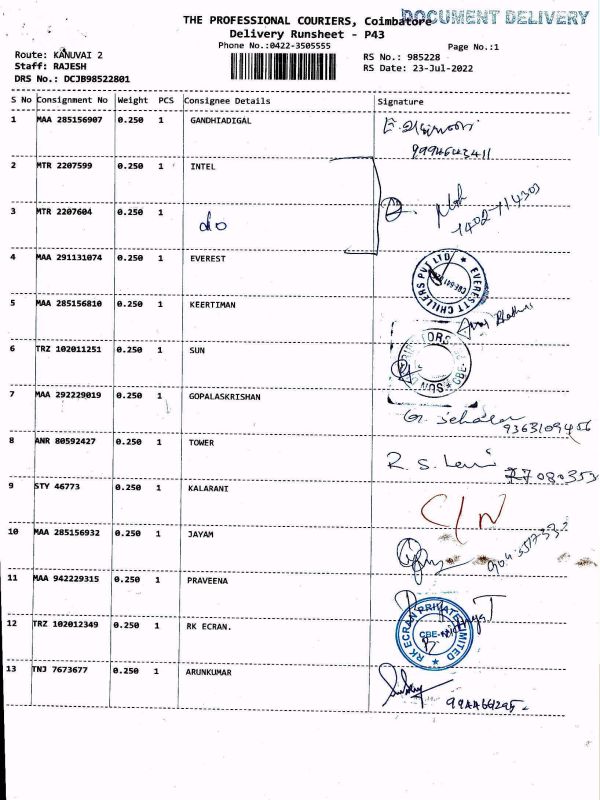 THE PROFESSIONAL COURIERS, Coimbatore
DOCUMENT DELIVERY
Delivery Runsheet - P43
Phone No.:0422-3505555
Page No.:1
Route: KANUVAI 2
RS No.: 985228
Staff: RAJESH
RS Date: 23-Jul-2022
DRS No.: DCJB98522801
S No Consignment No Weight PCS Consignee Details Signature
1 MAA 285156907 0.250 1 GANDHIADIGAL
9994643411
2 MTR 2207599 0.250 1 INTEL
3 MTR 2207604 0.250 1 do
1402-114303
4 MAA 291131074 0.250 1 EVEREST
EVERESTT CHILLERS PVT LTD
5 MAA 285156810 0.250 1 KEERTIMAN
6 TRZ 102011251 0.250 1 SUN
SUN CBE
7 MAA 292229019 0.250 1 GOPALASKRISHAN
9363109456
8 ANR 80592427 0.250 1 TOWER
R. S.
9 STY 46773 0.250 1 KALARANI
C/N
10 MAA 285156932 0.250 1 JAYAM
11 MAA 942229315 0.250 1 PRAVEENA
12 TRZ 102012349 0.250 1 RK ECRAN.
RK ECRAN PRIVATE LIMITED
CBE
13 TNJ 7673677 0.250 1 ARUNKUMAR